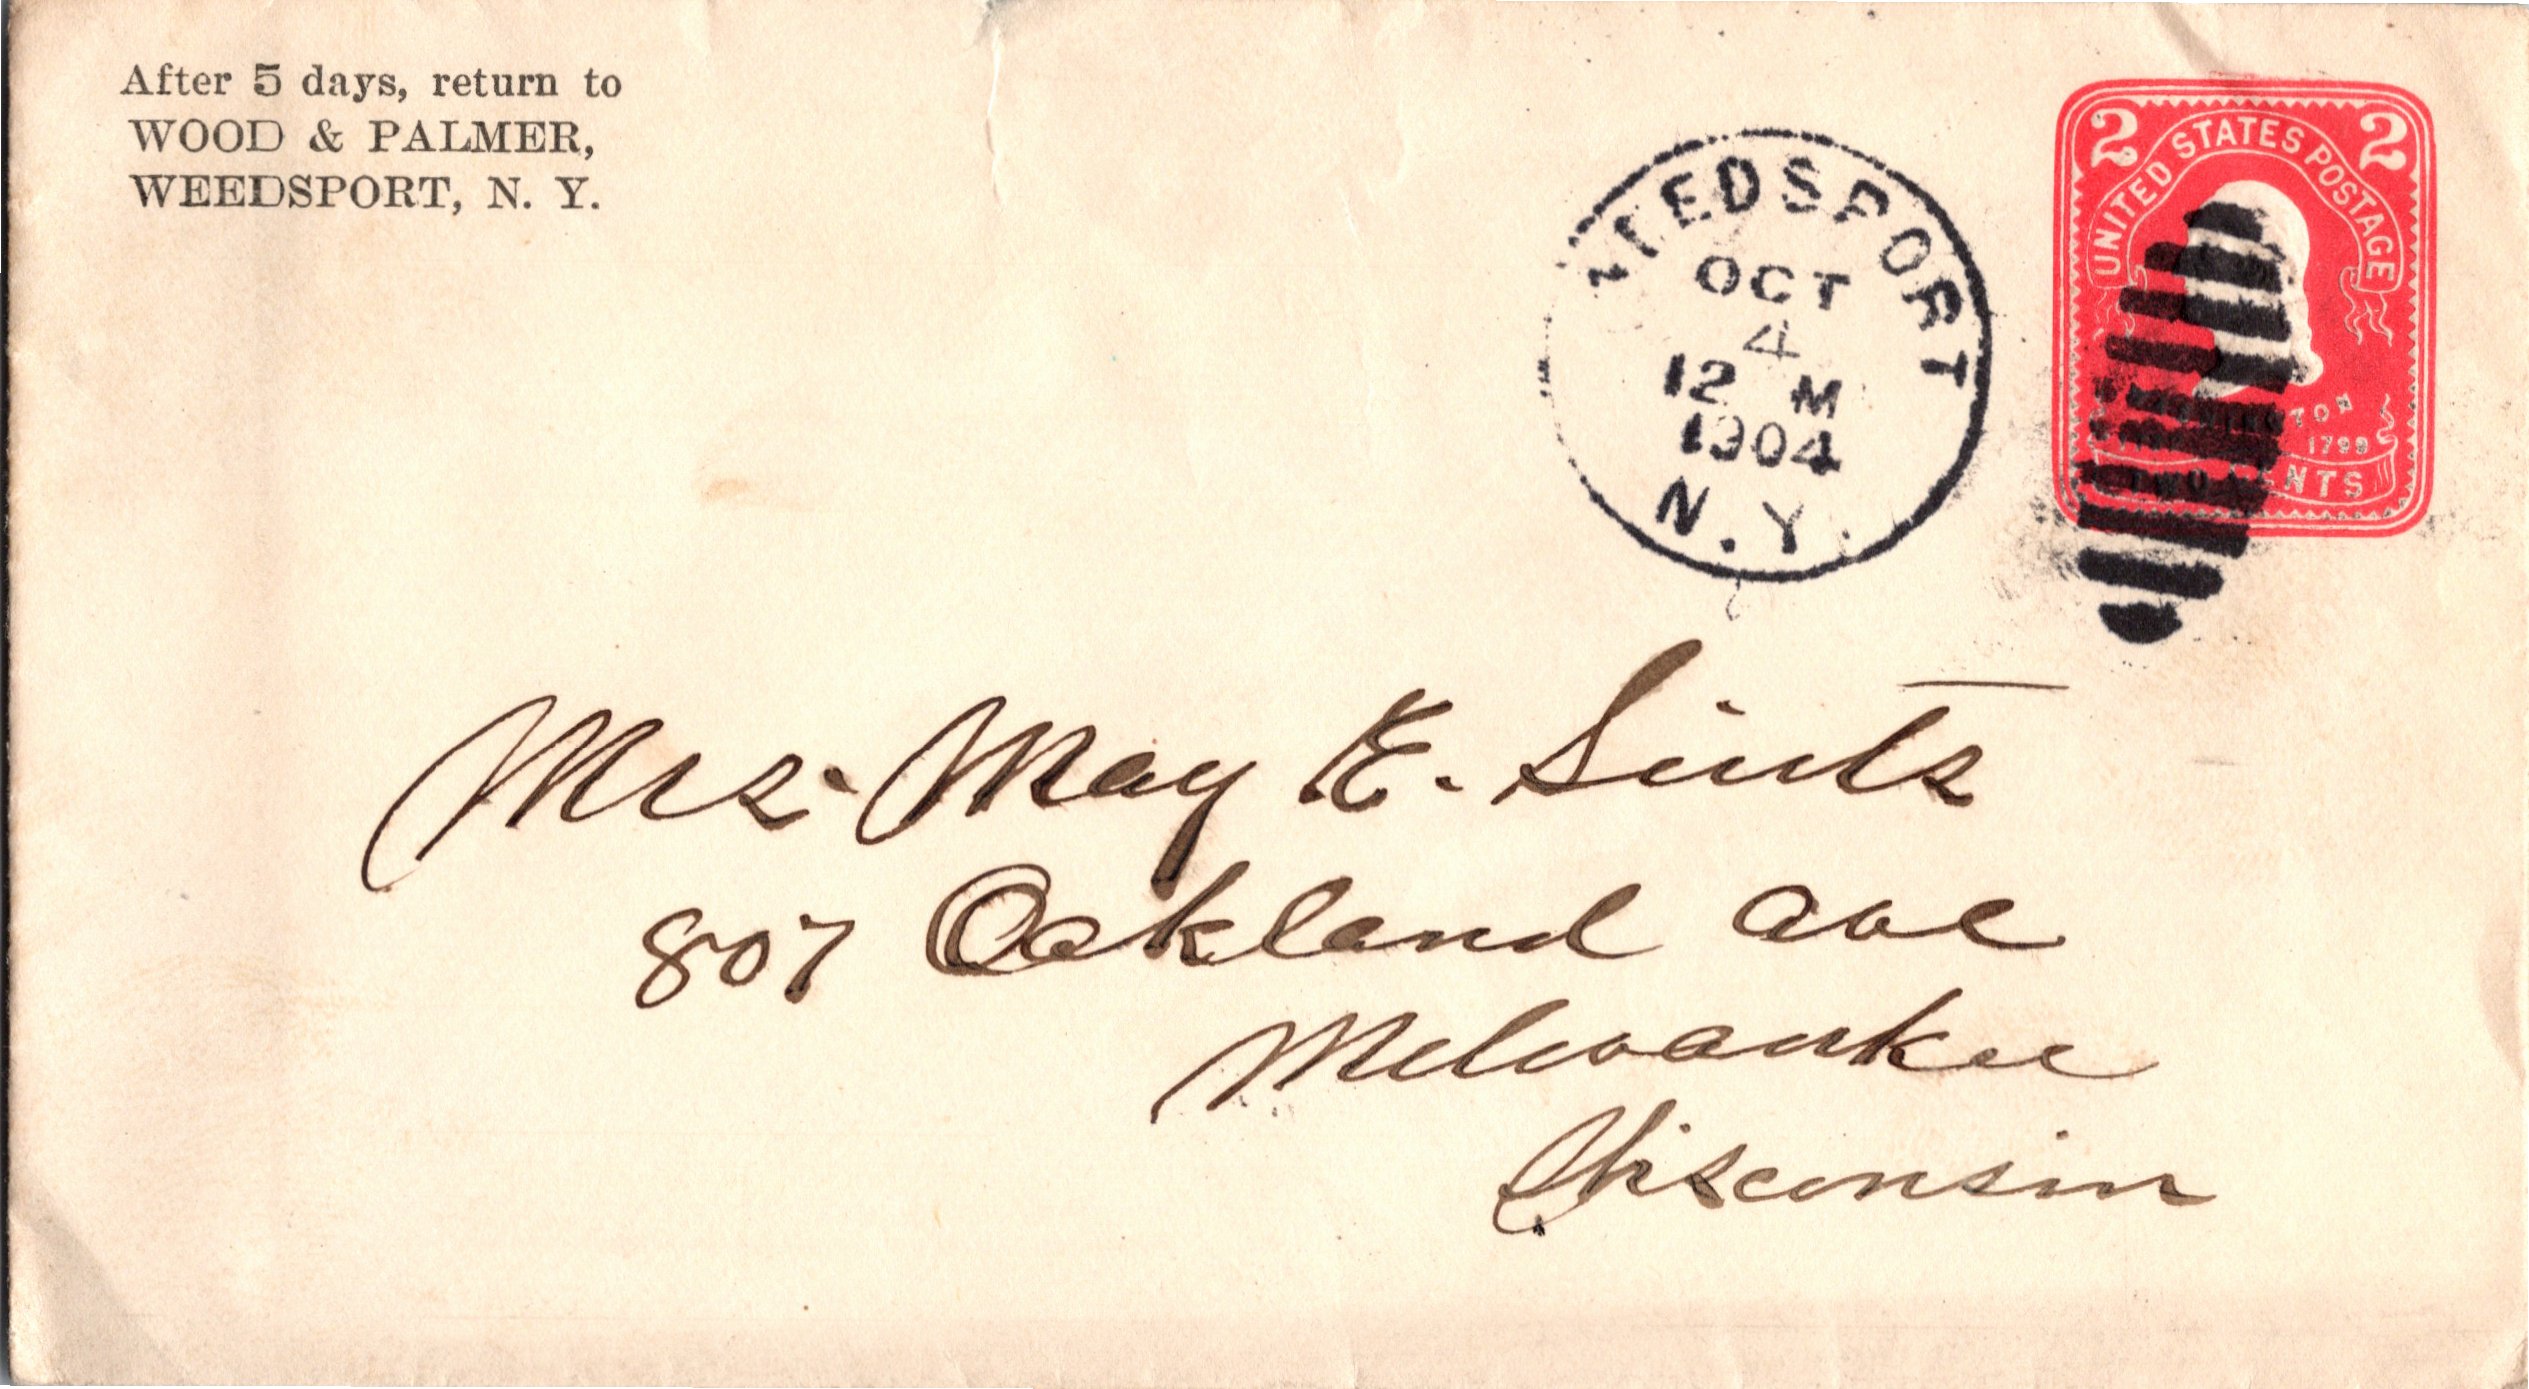 After 5 days, return to
WOOD & PALMER,
WEEDSPORT, N. Y.
WEEDSPORT
OCT
4
12 M
1904
N.Y.
2 2
UNITED STATES POSTAGE
WASHINGTON
1799
TWO CENTS
Mrs. May E. Sintz
807 Oakland Ave
Milwaukee
Wisconsin